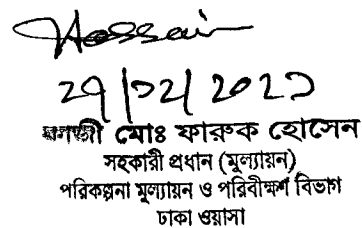 Hossain
মোঃ ফারুক হোসেন
সহকারী প্রধান (মুল্যায়ন)
পরিকল্পনা মুল্যায়ন ও পরিবীক্ষণ বিভাগ
ঢাকা ওয়াসা